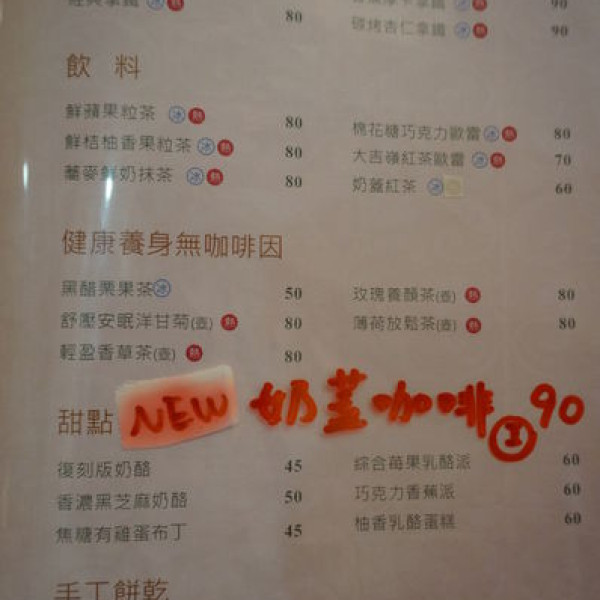 經典拿鐵 冰 熱 80
90
碳烤杏仁拿鐵 冰 熱 90
飲 料
鮮蘋果粒茶 冰 熱 80
鮮桔柚香果粒茶 冰 熱 80
蕎麥鮮奶抹茶 冰 熱 80
棉花糖巧克力歐蕾 冰 熱 80
大吉嶺紅茶歐蕾 冰 熱 70
奶蓋紅茶 冰 60
健康養身無咖啡因
黑醋栗果茶 冰 50
舒壓安眠洋甘菊(壺) 熱 80
輕盈香草茶(壺) 熱 80
玫瑰養顏茶(壺) 熱 80
薄荷放鬆茶(壺) 熱 80
NEW 奶蓋咖啡 I 90
甜點
復刻版奶酪 45
香濃黑芝麻奶酪 50
焦糖有雞蛋布丁 45
綜合莓果乳酪派 60
巧克力香蕉派 60
柚香乳酪蛋糕 60
手工餅乾